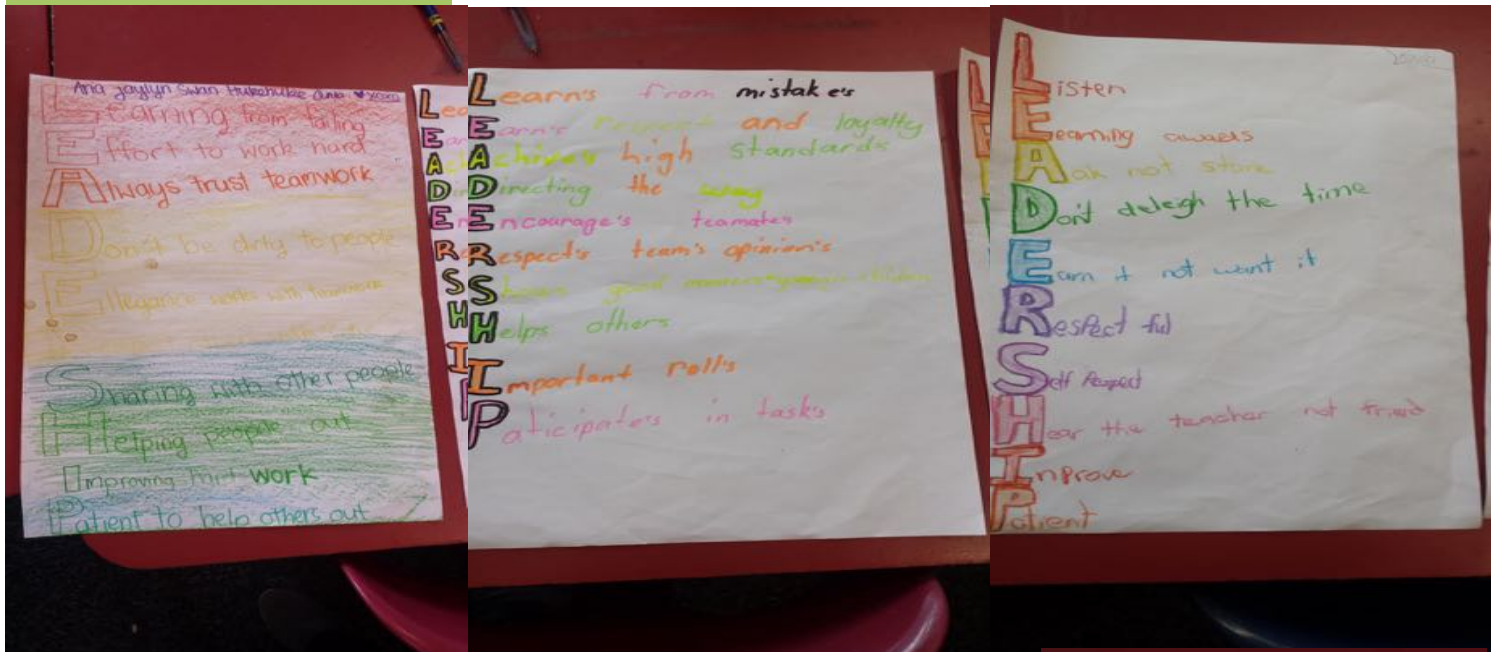 Aria Jaylyn Swan
Learning from failing
Effort to work hard
Always trust teamwork
Don't be dirty to people
Ellegance works with teamwork
Sharing with other people
Helping people out
Improving work
Patient to help others out
Learn's from mistake's
Earn's respect and loyalty
Achive's high standards
Directing the way
Encourage's teamates
Respect's team's opinion's
Shows good
Helps others
Important Roll's
Paticipate's in task's
Listen
Learning
Ask not
Don't deleigh the time
Earn it not want it
Respect ful
Self Respect
Hear the teacher not friend
Inprove
Patient